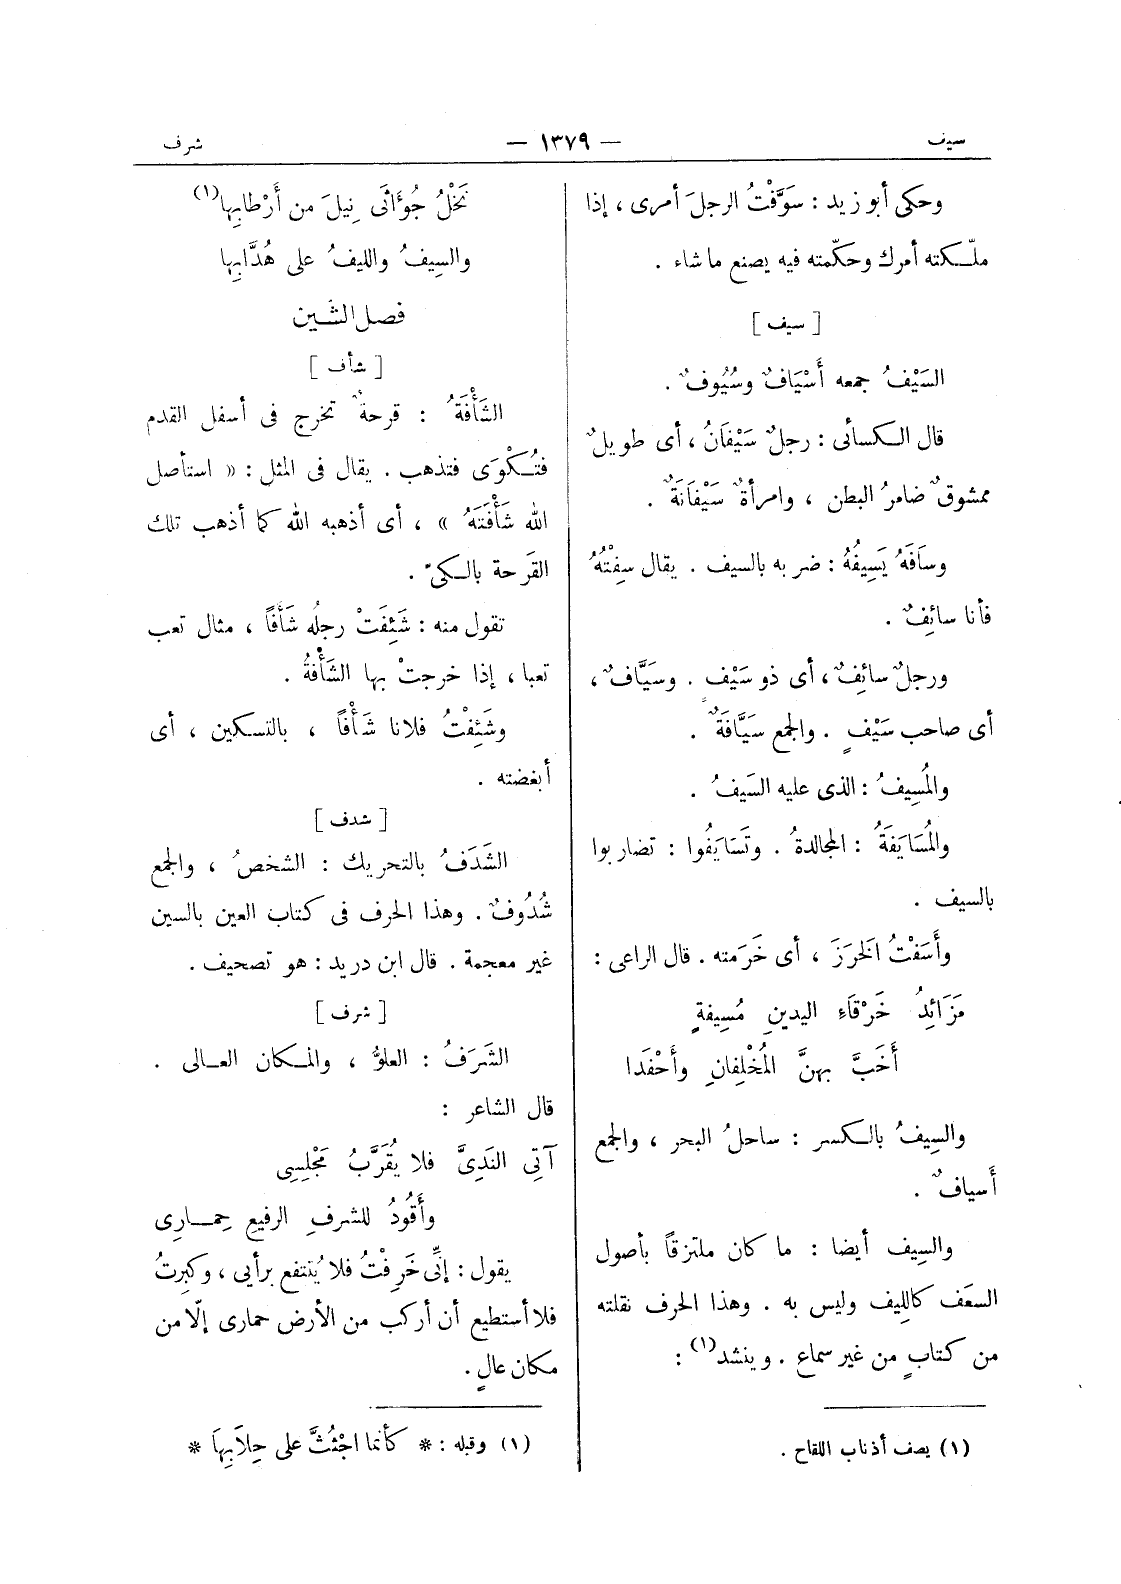 سيف
— ١٣٧٩ —
شرف
وحكى أبو زيد : سَوَّفْتُ الرجلَ أمرى ، إذا
ملّكته أمرك وحكّمته فيه يصنع ما شاء .
[ سيف ]
السَيْفُ جمعه أَسْيَافٌ وسُيُوفٌ .
قال الكسائى : رجلٌ سَيْفَانُ ، أى طويلٌ
ممشوقٌ ضامرُ البطن ، وامرأةٌ سَيْفَانَةٌ .
وسَافَهُ يَسِيفُهُ : ضربه بالسيف . يقال سِفْتُهُ
فأنا سائِفٌ .
ورجلٌ سائِفٌ ، أى ذو سَيْف . وسَيَّافٌ ،
أى صاحب سَيْفٍ . والجمع سَيَّافَةٌ .
والمُسِيفُ : الذى عليه السَيفُ .
والمُسَايَفَةُ : المجالدةُ . وتَسَايَفُوا : تضاربوا
بالسيف .
وأَسَفْتُ الخَرَزَ ، أى خَرَمته . قال الراعى :
مَزَائِدُ خَرْقَاءِ اليدينِ مُسِيفةٍ
أَخَبَّ بهنَّ المُخْلِفانِ وأَحْفَدَا
والسِيفُ بالكسر : ساحلُ البحر ، والجمع
أَسيافٌ .
والسِيف أيضا : ما كان ملتزقاً بأصول
السعَف كاللِيف وليس به . وهذا الحرف نقلته
من كتابٍ من غير سماع . وينشد(١) :
(١) يصف أذناب اللقاح .
نَخْلُ جُوَّاثَى نِيلَ من أَرْطابِها(١)
والسِيفُ والليفُ على هُدَّابِها
فصل الشَين
[ شأف ]
الشَأْفَةُ : قرحةٌ تخرج فى أسفل القدم
فتُكْوَى فتذهب . يقال فى المثل : « استأصل
الله شَأْفَتَهُ » ، أى أذهبه الله كما أذهب تلك
القَرحة بالكىّ .
تقول منه : شَئِفَتْ رجلُه شَأَفًا ، مثال تعب
تعبا ، إذا خرجتْ بها الشَأْفةُ .
وشَئِفْتُ فلانا شَأْفًا ، بالتسكين ، أى
أبغضته .
[ شدف ]
الشَدَفُ بالتحريك : الشخصُ ، والجمع
شُدُوفٌ . وهذا الحرف فى كتاب العين بالسين
غير معجمة . قال ابن دريد : هو تصحيف .
[ شرف ]
الشَرَفُ : العلوُّ ، والمكان العالى .
قال الشاعر :
آتِى النَدِىَّ فلا يُقَرَّبُ مَجْلِسِى
وأَقُودُ للشرفِ الرفيعِ حِمارِى
يقول : إنِّى خَرِفْتُ فلا يُنتفع برأيى ، وكبِرتُ
فلا أستطيع أن أركب من الأرض حمارى إلّا من
مكان عالٍ .
(١) وقبله : * كأنما اجْتُثَّ على حِلَابِهَا *